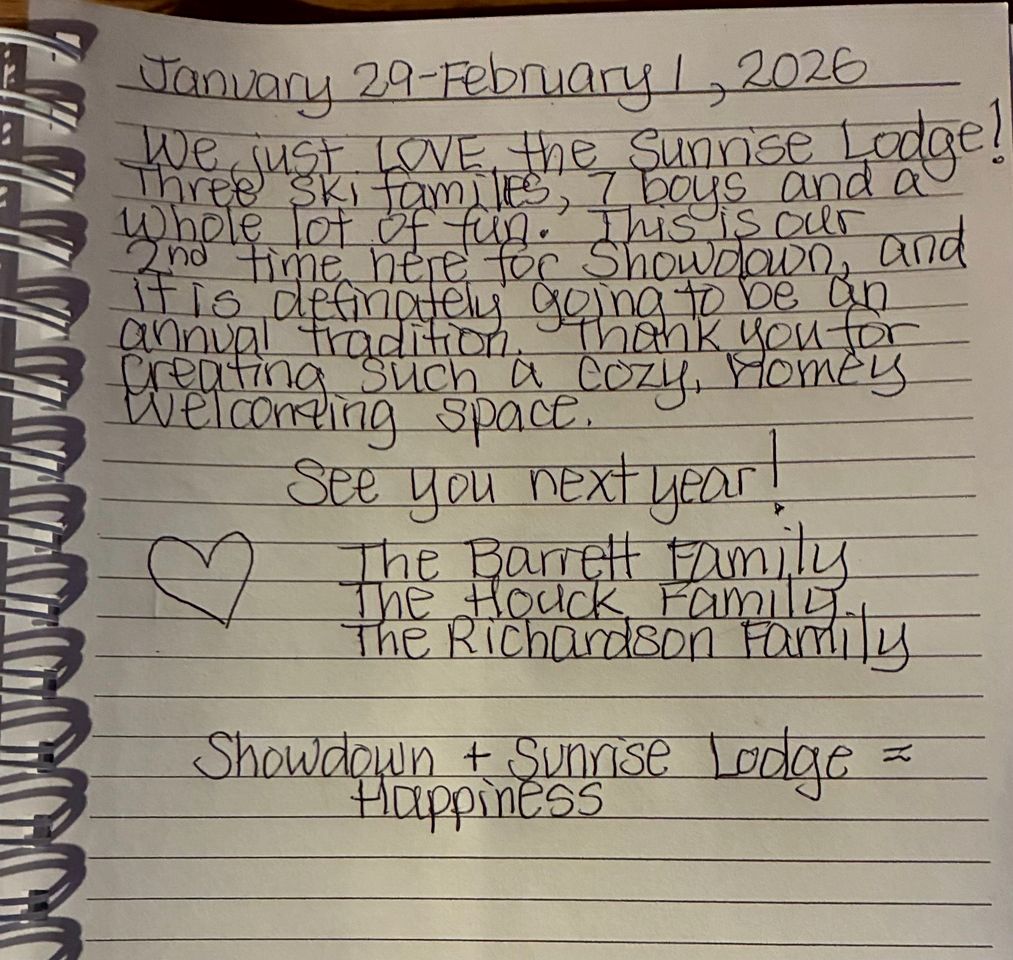 January 29-February 1, 2026
We just LOVE the Sunrise Lodge!
Three ski families, 7 boys and a
whole lot of fun. This is our
2nd time here for Showdown, and
it is definately going to be an
annual tradition. Thank you for
creating such a cozy, Homey
welcoming space.
See you next year!
The Barrett Family
The Houck Family
The Richardson Family
Showdown + Sunrise Lodge ≈
Happiness